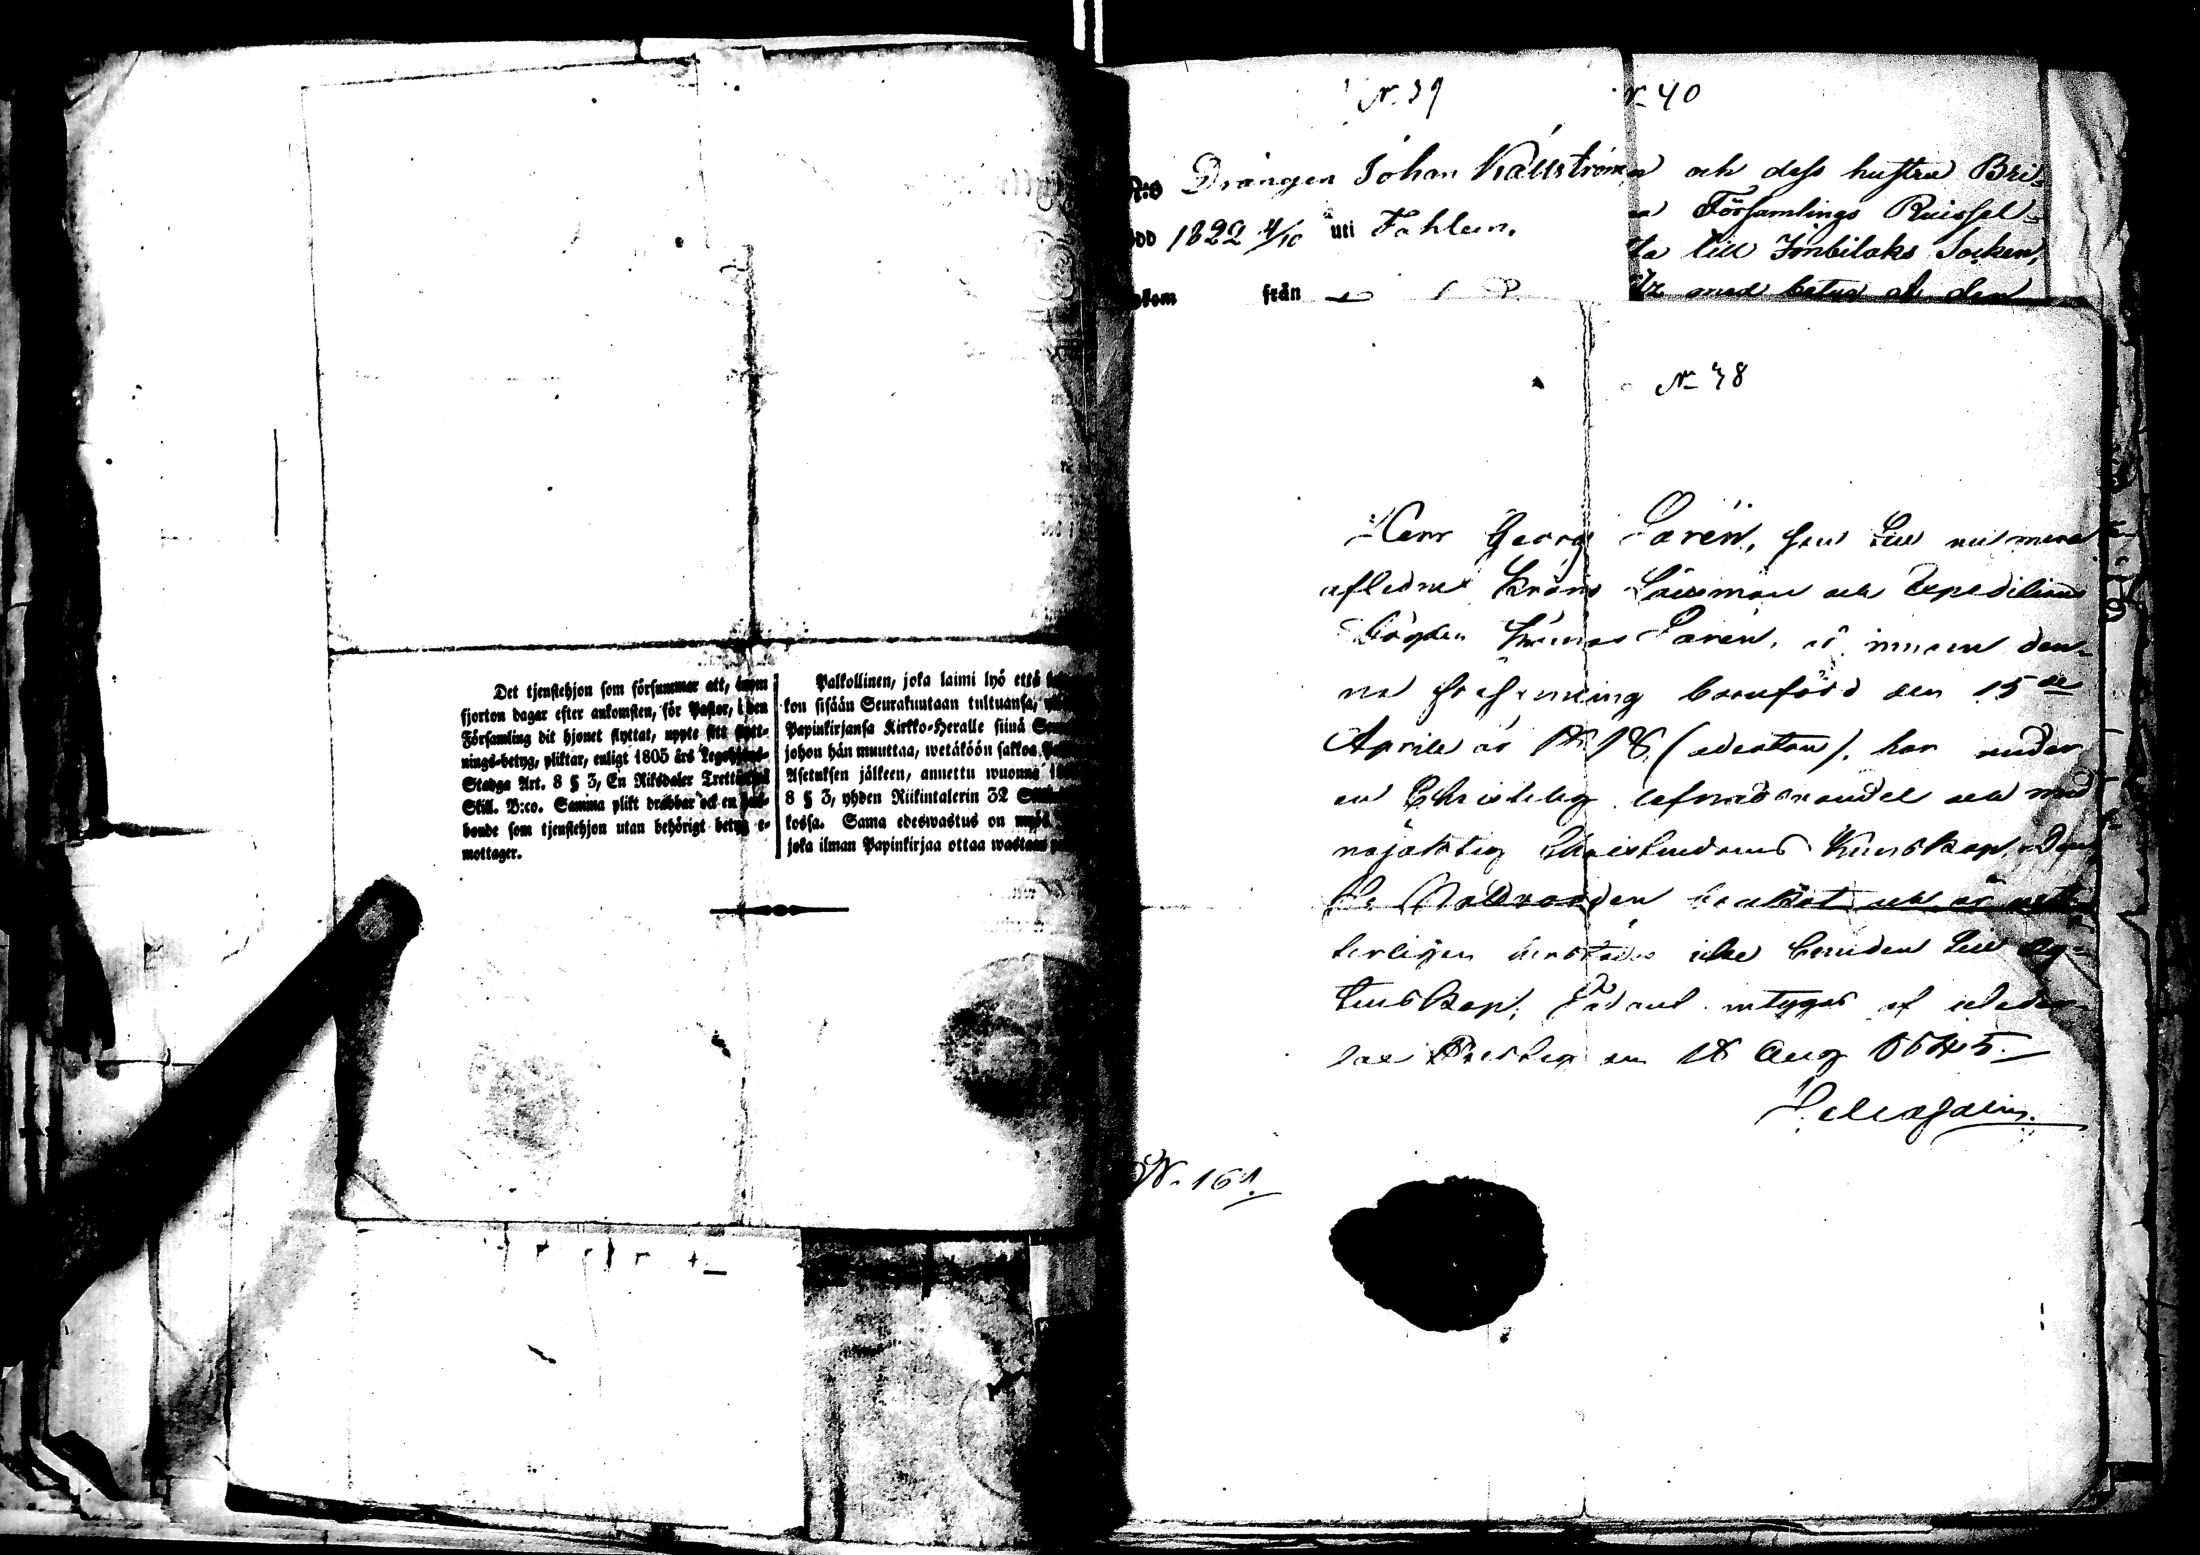 Det tjenstehjon som försummar att, inom
fjorton dagar efter ankomsten, för Pastor, i den
Församling dit hjonet flyttat, uppte sitt flytt-
nings-betyg, pliktar, enligt 1805 års Legohjons-
Stadga Art. 8 § 3, En Riksdaler Trettiotvå
Skill. B:co. Samma plikt drabbar ock en hus-
bonde som tjenstehjon utan behörigt betyg e-
mottager.
Palkollinen, joka laimi lyö että
kon sisään Seurakuntaan tultuansa,
Papinkirjansa Kirkko-Herralle siinä
johon hän muuttaa, wetäköön sakkoa
Asetuksen jälkeen, annettu wuonna
8 § 3, yhden Riikintalerin 32
kossa. Sama edeswastus on myös
joka ilman Papinkirjaa ottaa wastaan
N. 39
Drängen Johan Källström
1822 4/10 uti Fahlun.
från
N. 40
och dess hustru Bri-
Församlings Ruissal-
ta till Imbilaks Socken,
med betyg af den
N 38
Herr Georg Sarén, son till nu mera
aflidne Krono Länsman och Expeditions
Fogden Thomas Sarén, är innom den-
na församling barnförd den 15de
April år 1818 (aderton), har under
en Christelig lefnadsvandel och med
nöjaktig Christendoms Kunskap
H. Nattvarden brukat och är
terligen ikke bunden till äg-
tenskap, Sådant intygas af
den 18 Aug 1845.
N. 161.